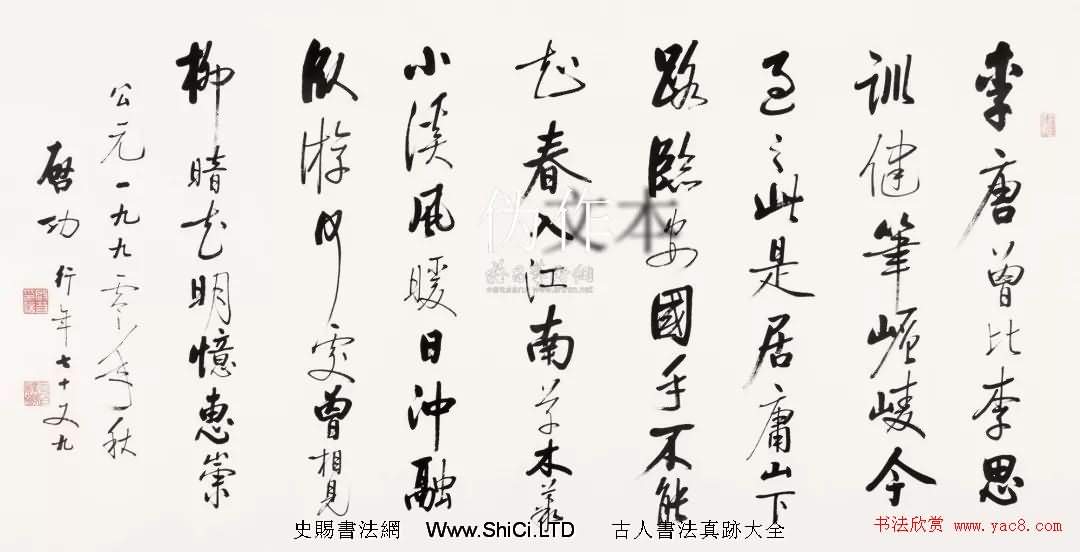 李唐曾比李思
訓健筆崚嶒今
過之此是居庸山下
路臨安國手不能
起春入江南草木叢
小溪風暖日沖融
臥游何處曾相見
柳暗花明憶惠崇
公元一九九零年秋
啓功
行年七十又九
伪作
文本
史賜書法網 Www.ShiCi.LTD 古人書法真跡大全
书法欣赏 www.yac8.com